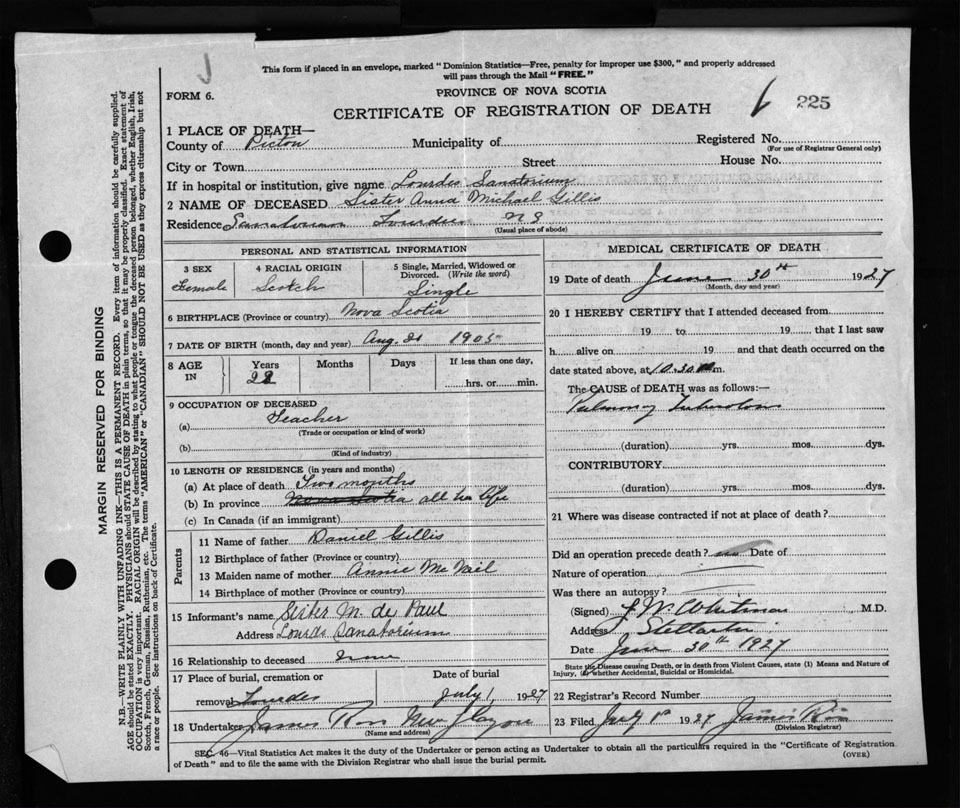 This form if placed in an envelope, marked "Dominion Statistics—Free, penalty for improper use $300," and properly addressed
will pass through the Mail "FREE."
FORM 6.
PROVINCE OF NOVA SCOTIA
CERTIFICATE OF REGISTRATION OF DEATH
225
1 PLACE OF DEATH—
County of Pictou Municipality of Registered No.
(For use of Registrar General only)
City or Town Street House No.
If in hospital or institution, give name Lourdes Sanatorium
2 NAME OF DECEASED Sister Anna Michael Gillis
Residence Sanatorium Lourdes N S
(Usual place of abode)
PERSONAL AND STATISTICAL INFORMATION
3 SEX
Female
4 RACIAL ORIGIN
Scotch
5 Single, Married, Widowed or
Divorced. (Write the word)
Single
6 BIRTHPLACE (Province or country) Nova Scotia
7 DATE OF BIRTH (month, day and year) Aug. 1905
8 AGE
IN
Years
Months
Days
If less than one day,
hrs. or min.
9 OCCUPATION OF DECEASED
(a) Teacher
(Trade or occupation or kind of work)
(b)
(Kind of industry)
10 LENGTH OF RESIDENCE (in years and months)
(a) At place of death Two months
(b) In province Nova Scotia all her life
(c) In Canada (if an immigrant)
Parents
11 Name of father Daniel Gillis
12 Birthplace of father (Province or country)
13 Maiden name of mother Annie McNeil
14 Birthplace of mother (Province or country)
15 Informant's name Sister M. de Paul
Address Lourdes Sanatorium
16 Relationship to deceased none
17 Place of burial, cremation or
removal Lourdes
Date of burial
July 1 1927
18 Undertaker James Ross New Glasgow
(Name and address)
MEDICAL CERTIFICATE OF DEATH
19 Date of death June 30th 1927
(Month, day and year)
20 I HEREBY CERTIFY that I attended deceased from
19 to 19 that I last saw
h alive on 19 and that death occurred on the
date stated above, at 10.30 m.
The CAUSE OF DEATH was as follows:—
Pulmonary Tuberculosis
(duration) yrs. mos. dys.
CONTRIBUTORY
(duration) yrs. mos. dys.
21 Where was disease contracted if not at place of death?
Did an operation precede death? no Date of
Nature of operation
Was there an autopsy?
(Signed) Whitman M.D.
Address Stellarton
Date June 30th 1927
State the Disease causing Death, or in death from Violent Causes, state (1) Means and Nature of
Injury, (2) whether Accidental, Suicidal or Homicidal.
22 Registrar's Record Number
23 Filed July 1st 1927 James Ross
(Division Registrar)
SEC. 46—Vital Statistics Act makes it the duty of the Undertaker or person acting as Undertaker to obtain all the particulars required in the "Certificate of Registration
of Death" and to file the same with the Division Registrar who shall issue the burial permit.
(OVER)
MARGIN RESERVED FOR BINDING
N.B.—WRITE PLAINLY WITH UNFADING INK—THIS IS A PERMANENT RECORD. Every item of information should be carefully supplied.
AGE should be stated EXACTLY. PHYSICIANS should STATE CAUSE OF DEATH in plain terms, so that it may be properly classified. Exact statement of
OCCUPATION is very important. RACIAL ORIGIN will be described by stating to what people or tongue the deceased person belonged, whether English, Irish,
Scotch, French, German, Russian, Ruthenian, etc. The terms "AMERICAN" or "CANADIAN" SHOULD NOT BE USED as they express citizenship but not
a race or people. See instructions on back of Certificate.